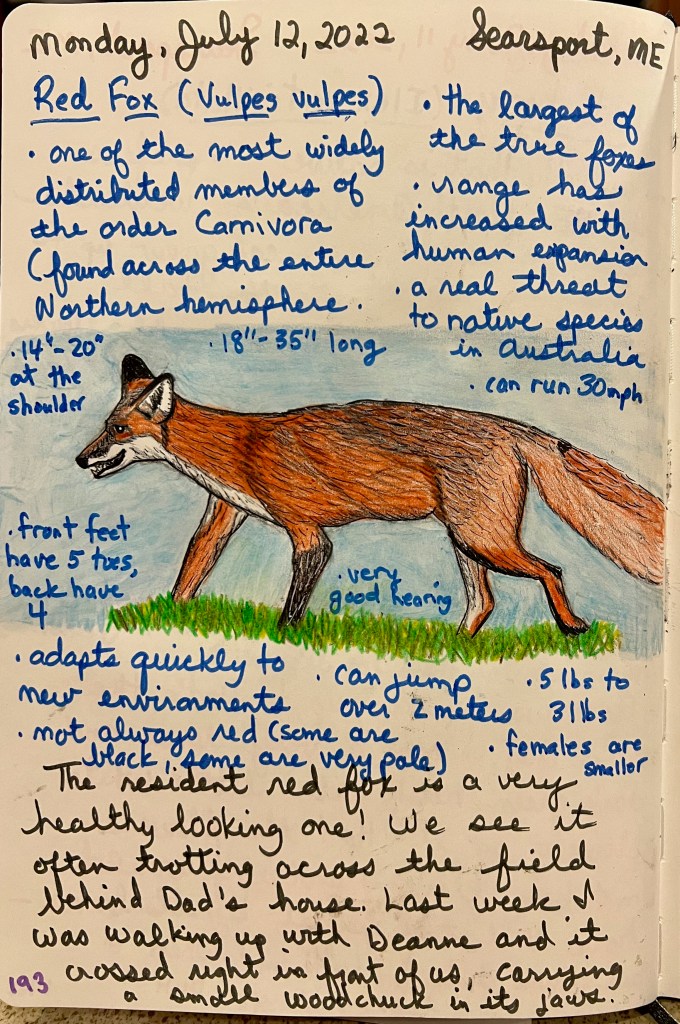 Monday, July 12, 2022
Searsport, ME
Red Fox (Vulpes vulpes)
• one of the most widely
distributed members of
the order Carnivora
(found across the entire
Northern hemisphere.
• the largest of
the true foxes
• range has
increased with
human expansion
• a real threat
to native species
in Australia
• can run 30mph
• 14"-20"
at the
shoulder
• 18"-35" long
• front feet
have 5 toes,
back have
4
• very
good hearing
• adapts quickly to
new environments
• not always red (some are
black, some are very pale)
• can jump
over 2 meters
• 5 lbs to
31 lbs
• females are
smaller
The resident red fox is a very
healthy looking one! We see it
often trotting across the field
behind Dad's house. Last week I
was walking up with Deanne and it
crossed right in front of us, carrying
a small woodchuck in its jaws.
193